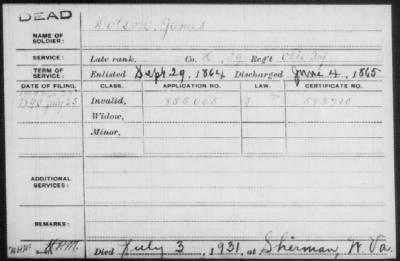 DEAD
NAME OF SOLDIER: Dotson, James
SERVICE: Late rank, Co. K, 39 Reg't Ohio Inf
TERM OF SERVICE: Enlisted Sept 29, 1864 Discharged June 4, 1865
DATE OF FILING. CLASS. APPLICATION NO. LAW. CERTIFICATE NO.
1890 July 25 Invalid, 855005
Widow,
Minor,
ADDITIONAL SERVICES:
REMARKS:
Died July 3, 1931, at Sherman, W. Va.